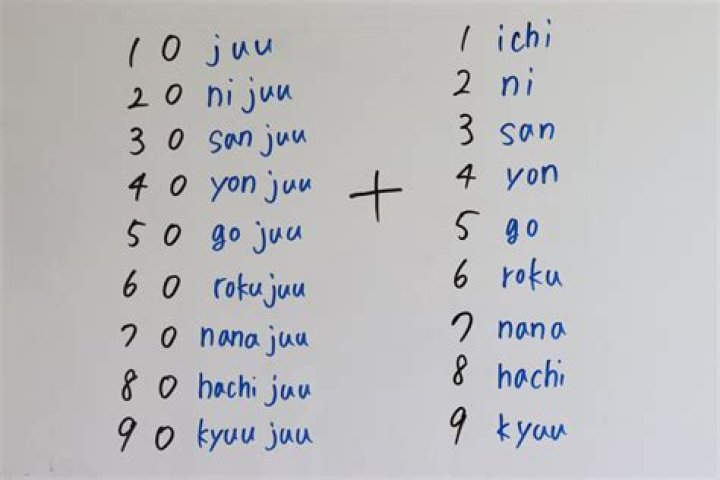 10 juu
20 ni juu
30 san juu
40 yon juu
50 go juu
60 roku juu
70 nana juu
80 hachi juu
90 kyuu juu
+
1 ichi
2 ni
3 san
4 yon
5 go
6 roku
7 nana
8 hachi
9 kyuu